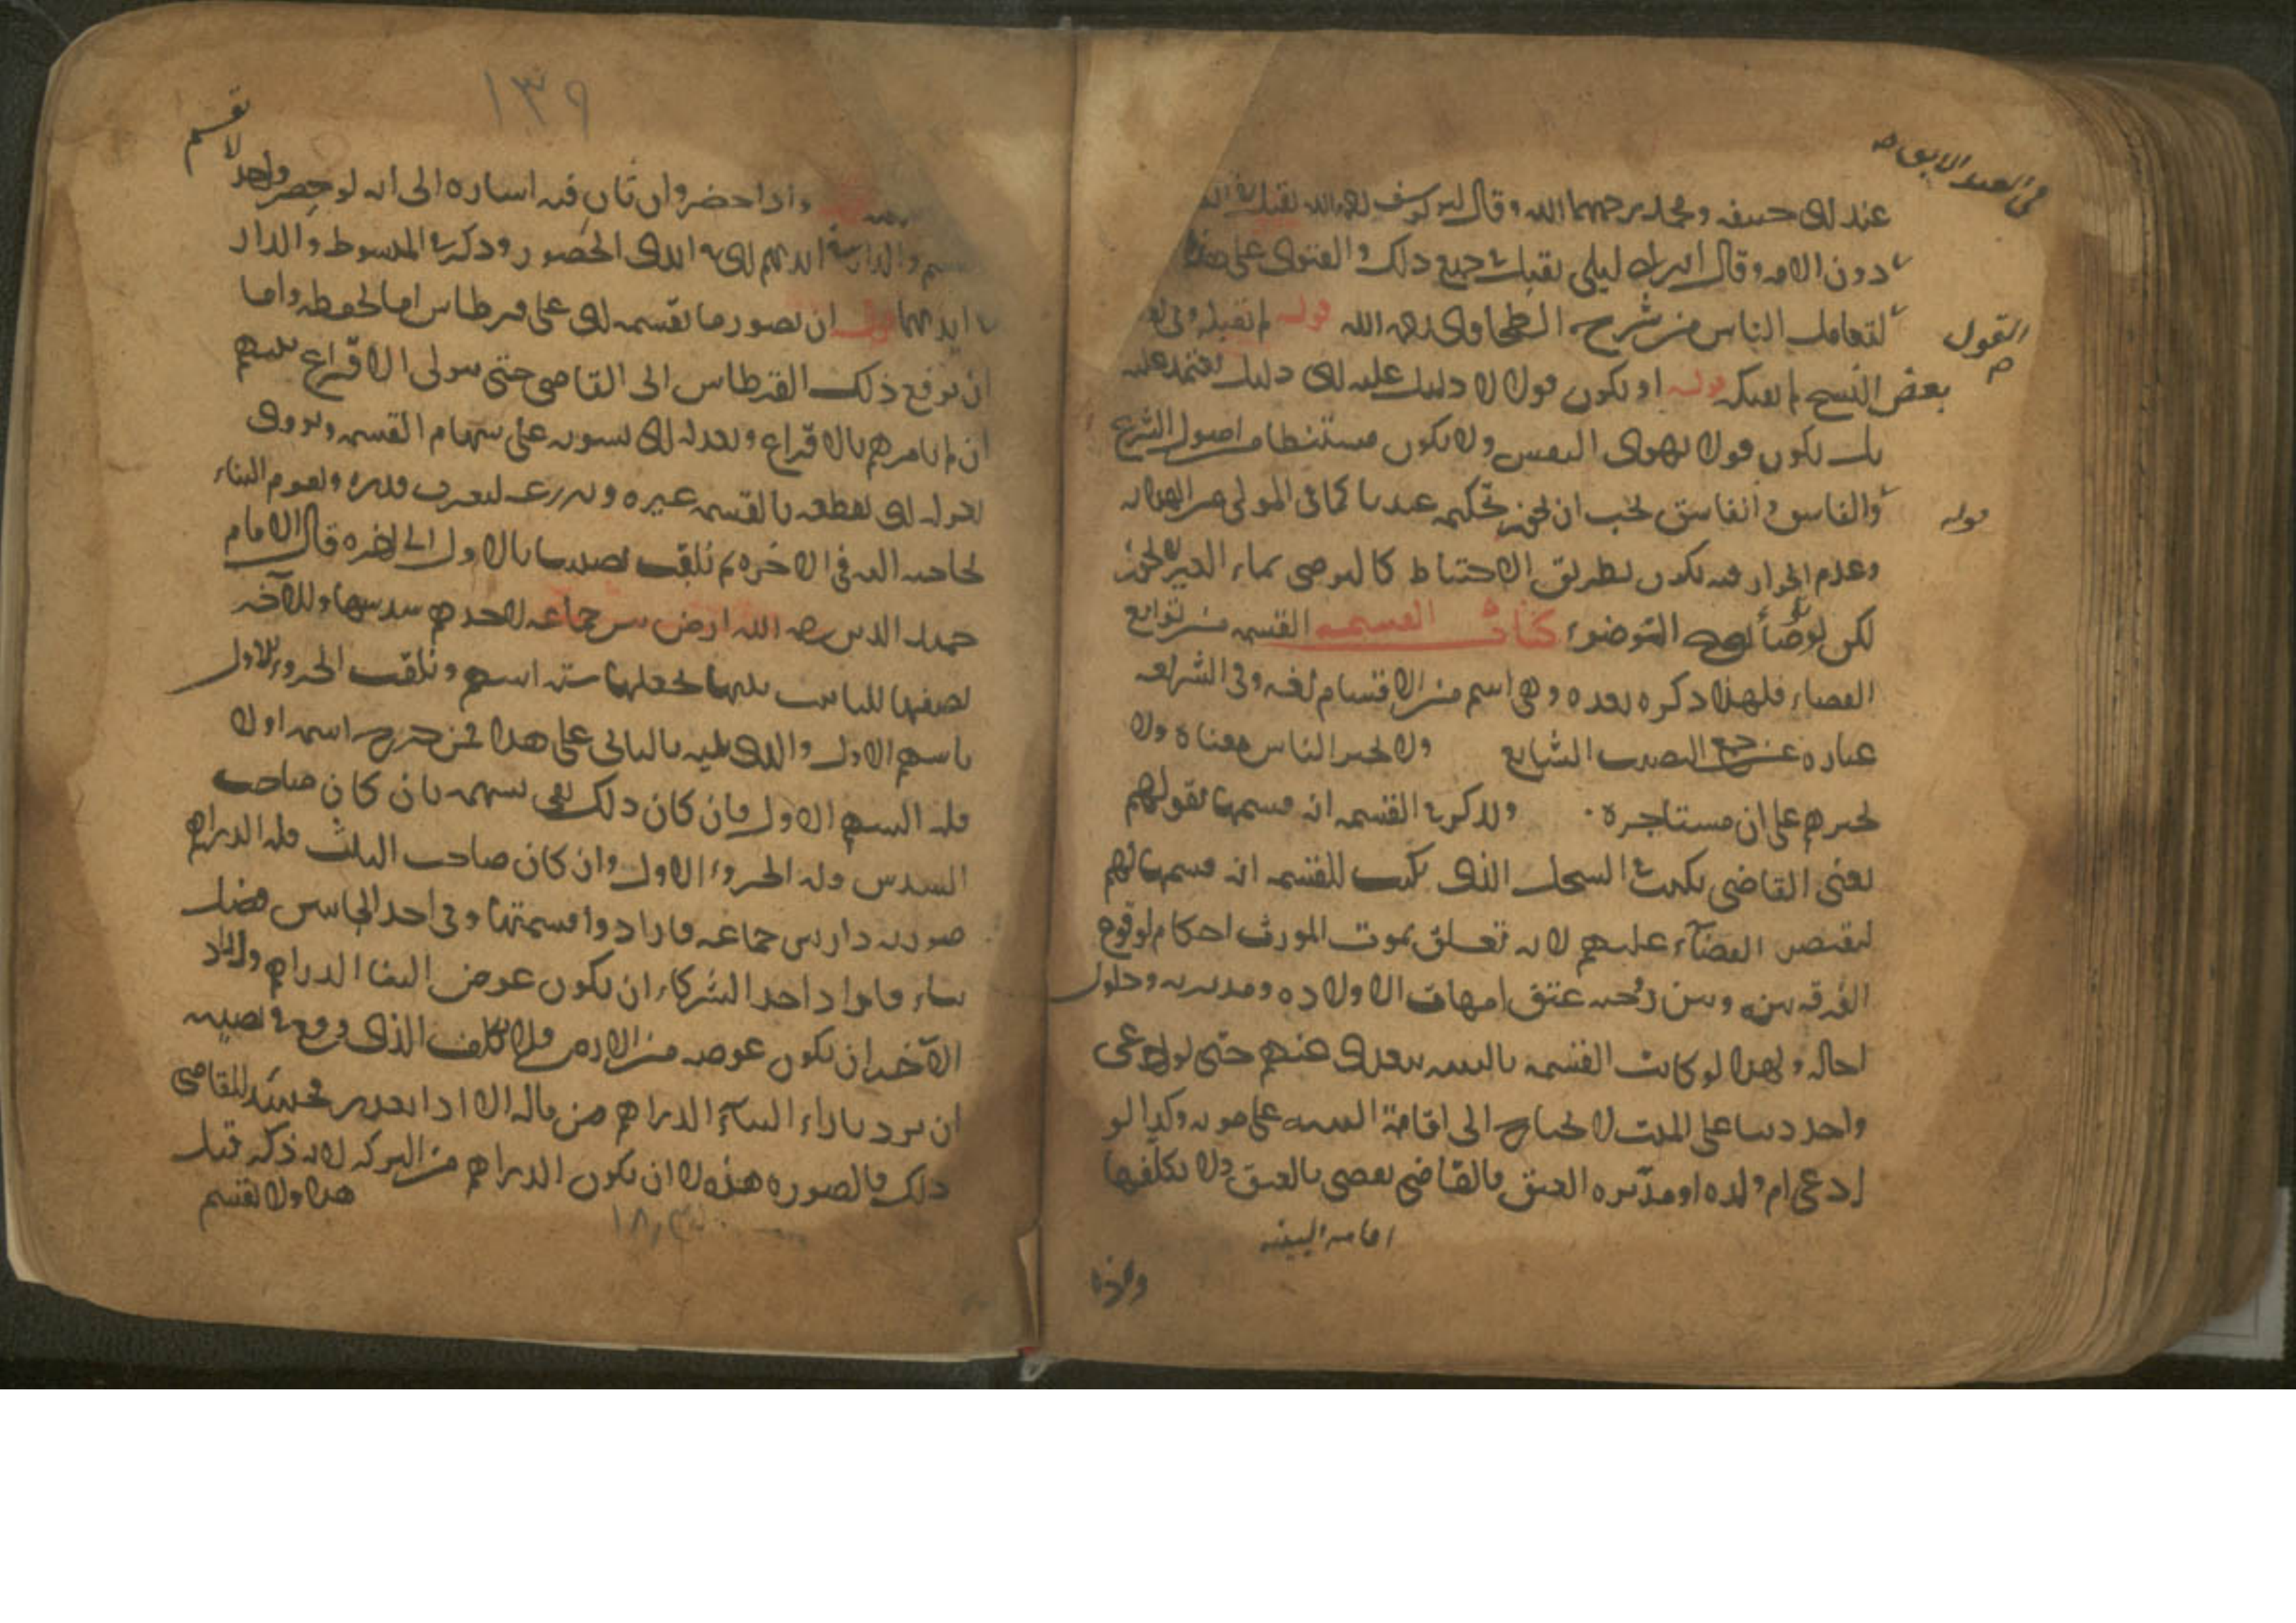 في العبد الابق
عند ابي حنيفه ومحمد رحمهما الله وقال ابو يوسف رحمه الله تقبل في العبد
دون الامه وقال ابن ابي ليلى تقبل في جميع ذلك والفتوى على هذا
القول
لتعامل الناس من شرح الطحاوي رحمه الله قوله لم تقبله وفي
بعض النسخ لم قوله او يكون قولا لا دليل عليه اي دليل يعتمد عليه
بل يكون قولا بهوى النفس ولا يكون مستنبطا من اصول الشرع
قوله
والفاسق يجب ان يجوز تحكيمه عندنا كما في المولى من الهدايه
وعدم الجواز فيه يكون بطريق الاحتياط كالتوضي بماء لا يجوز
لكن لو توضأ التوضوء كتاب القسمه القسمه من توابع
القضاء فلهذا ذكره بعده وهي اسم من الاقتسام لغه وفي الشريعه
عباره عن جمع النصيب الشايع ولا يجبر الناس معناه ولا
يجبرهم على ان مستاجره ويذكر في القسمه انه قسمها بقولهم
يعني القاضي يكتب في السجل الذي يكتب للقسمه انه قسمها بقولهم
ليقتصر القضاء عليهم لانه تعلق بموت المورث احكام لوقوع
الفرقه بينه وبين زوجته عتق امهات الاولاده ومدبريه وحلول
اجاله ولهذا لو كانت القسمه بالبينه يتعدى عنهم حتى لو ادعى
واحد دينا على الميت لا يحتاج الى اقامة البينه على موته وكذا لو
ادعى ام ولده او مدبره العتق فالقاضي يقضي بالعتق ولا يكلفها
اقامه البينه
١٣٩
واذا حضر وان فيه اشاره الى انه لو حضر واحد لا تقسم
ايديهم اي في ايدي الحضور وذكر في المبسوط والدار
في ايديهما قوله ان يصور ما يقسمه اي على قرطاس اما لحفظه واما
ان يرفع ذلك القرطاس الى القاضي حتى يتولى الاقراع بينهم
ان لم يامرهم بالاقراع ويعدله اي يسويه على سهام القسمه ويروى
يعزله اي يقطعه بالقسمه عن غيره ويذرعه ليعرف قدره ويقوم البناء
لحاجته اليه في الاخره ثم يلقب نصيبا بالاول الى اخره قال الامام
حميد الدين رحمه الله ارض بين جماعه لاحدهم سدسها وللآخر
نصفها للثالث ثلثها يجعلها سته اسهم ويلقب الجزء الاول
باسهم الاول والذي يليه بالثاني على هذا فمن خرج اسمه اولا
فله السهم الاول فان كان ذلك يفي بسهمه بان كان صاحب
السدس فله الجزء الاول وان كان صاحب الثلث
صورته دار بين جماعه فارادوا قسمتها وفي احد الجانبين فضل
بناء فاراد احد الشركاء ان يكون عوض البناء الدراهم واراد
الآخر ان يكون عوضه من الارض ولا يكلف الذي وقع في نصيبه
ان يرد بازاء البناء الدراهم من ماله الا اذا تعذر فحينئذ للقاضي
ذلك فالصوره هذه لا ان يكون الدراهم من التركه لانه ذكر قبل
هذا ولا تقسم